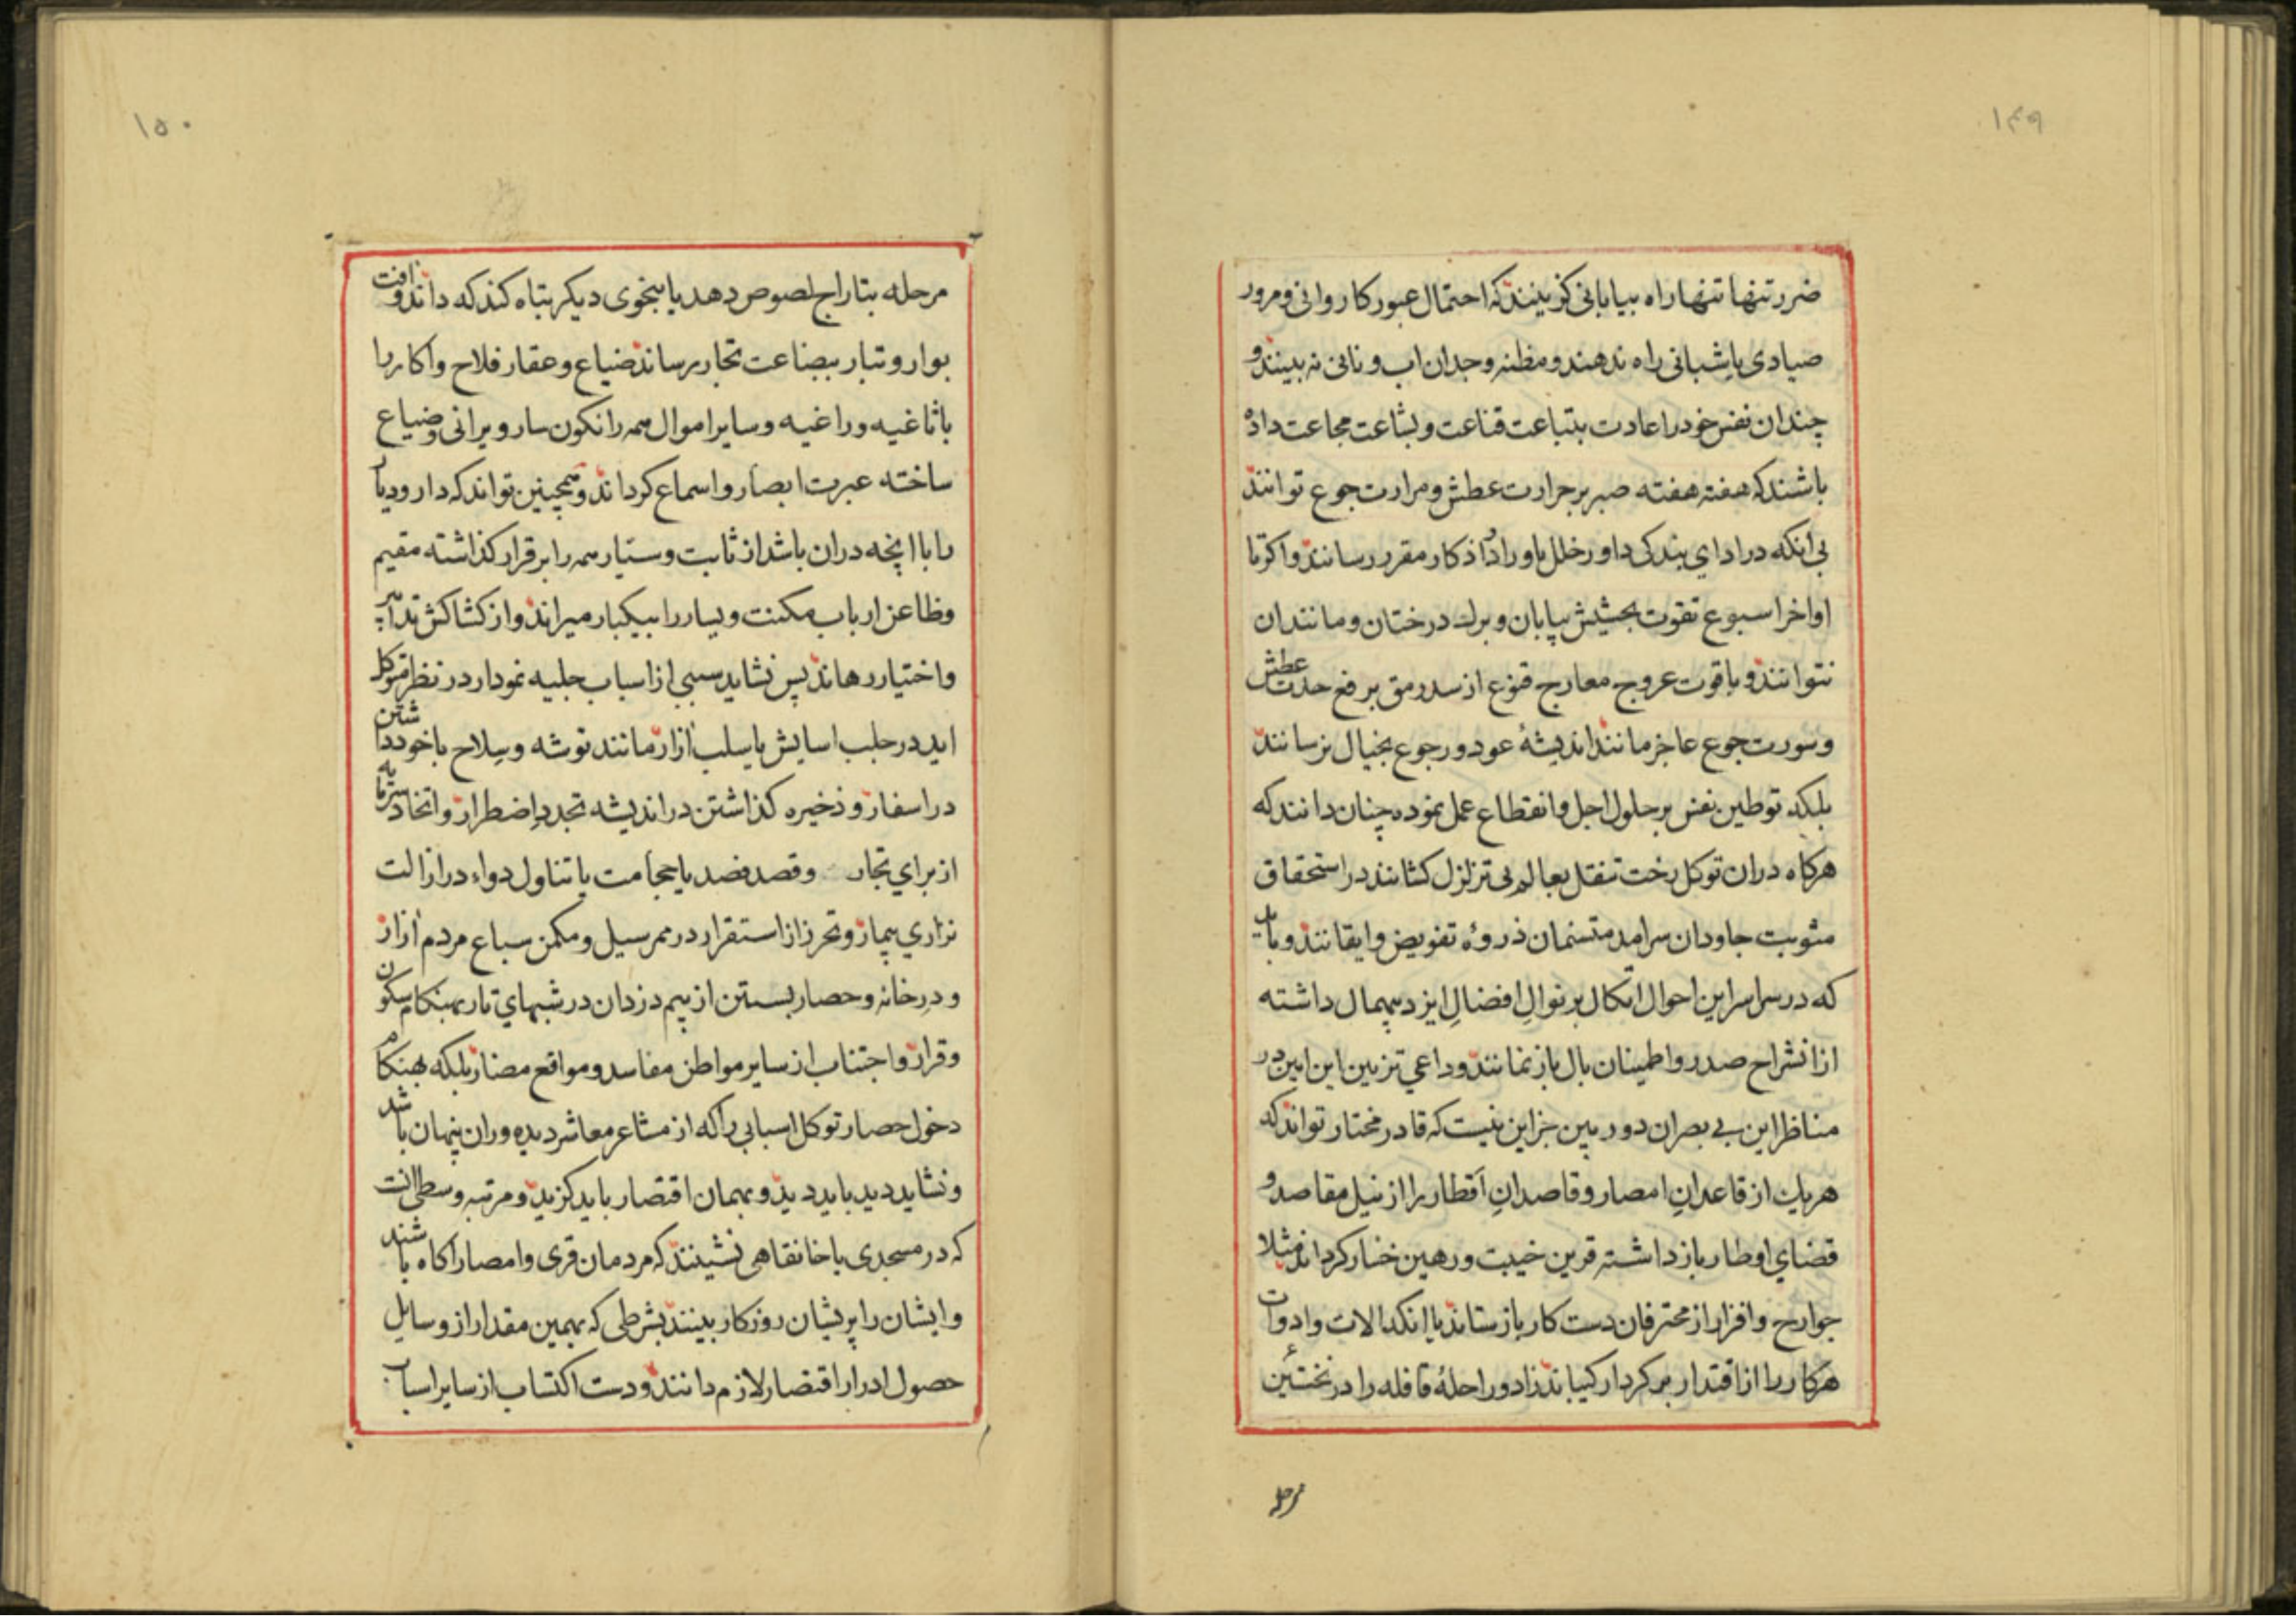 ۱۴۹
ضرر تنها تنها راه بیابانی کزینند که احتمال عبور کاروانی و مرور
صیادی یا شبانی راه ندهند و مظنه وجدان اب و نانی نه بینند و
چندان نفس خود را عادت بتباعت قناعت و بشاعت مجاعت داده
باشند که هفته هفته صبر بر حرارت عطش و مرارت جوع توانند
بی انکه در ادای بندکی داور خلل باوراد و اذکار مقرر رسانند و اکر تا
اواخر اسبوع تقوت بحشیش بیابان و برك درختان و مانند ان
نتوانند و با قوت عروج معارج قنوع از سد رمق بر فع حدت عطش
و سورت جوع عاجز مانند اندیشهٔ عود و رجوع بخیال نرسانند
بلکه توطین نفس بر حلول اجل و انقطاع عمل نموده چنان دانند که
هرکاه دران توکل رخت تنقل بعالم بی تزلزل کشانند در استحقاق
مثوبت جاودان سرامد متسنمان ذروهٔ تفویض و ایقانند و باید
که در سراسر این احوال اتکال بر نوالِ افضالِ ایزد بیهمال داشته
از انشراح صدر و اطمینان بال باز نمانند و داعی تزیین این ایین در
مناظر این بی بصران دوربین جز این نیست که قادر مختار تواند که
هریك از قاعدانِ امصار و قاصدانِ اقطار را از نیل مقاصد و
قضای اوطار باز داشته قرین خیبت و رهین خسار کرداند مثلا
جوارح و افزار از محترفان دست کار باز ستاند یا انکه الات و ادوات
هرکار را از اقتدار بر کردار کیباند زاد و راحلهٔ قافله را در نخستین
مرحله
۱۵۰
مرحله بتاراج لصوص دهد یا بنحوی دیکر بتباه کند که داند و افت
بوار و تبار ببضاعت تجار رساند ضیاع و عقار فلاح و اکار را
با ثاغیه و راغیه و سایر اموال همه را نکون سار ویرانی و ضیاع
ساخته عبرت ابصار و اسماع کرداند و همچنین تواند که دار و دیار
را با انچه دران باشد از ثابت و سیار همه را بر قرار کذاشته مقیم
و ظاعن ارباب مکنت و یسار را بیکبار میراند و از کشاکش تدابیر
و اختیار رهاند پس نشاید سببی از اسباب جلیه نمودار در نظر متوکل
اید در جلب اسایش یا سلب ازار مانند توشه و سلاح با خود داشتن
در اسفار و ذخیره کذاشتن در اندیشه تجددِ اضطرار و اتخاد سرمایه
از برای تجار و قصد فصد یا حجامت یا تناول دواء در ازالت
نزاری بیمار و تحرز از استقرار در ممر سیل و مکمن سباع مردم ازار
و درِ خانه و حصار بستن از بیم دزدان در شبهای تار بهنکام سکون
و قرار و اجتناب از سایر مواطن مفاسد و مواقع مضار بلکه بهنکام
دخول حصار توکل اسبابی را که از مشاعر معاشر دیده وران پنهان باشد
و نشاید دید باید دید و بهمان اقتصار باید کزید و مرتبه وسطی انست
که در مسجدی یا خانقاهی نشینند که مردمان قری و امصار اکاه باشند
و ایشان را پریشان روزکار بینند بشرطی که بهمین مقدار از وسایل
حصول ادرار اقتصار لازم دانند و دست اکتساب از سایر اسباب